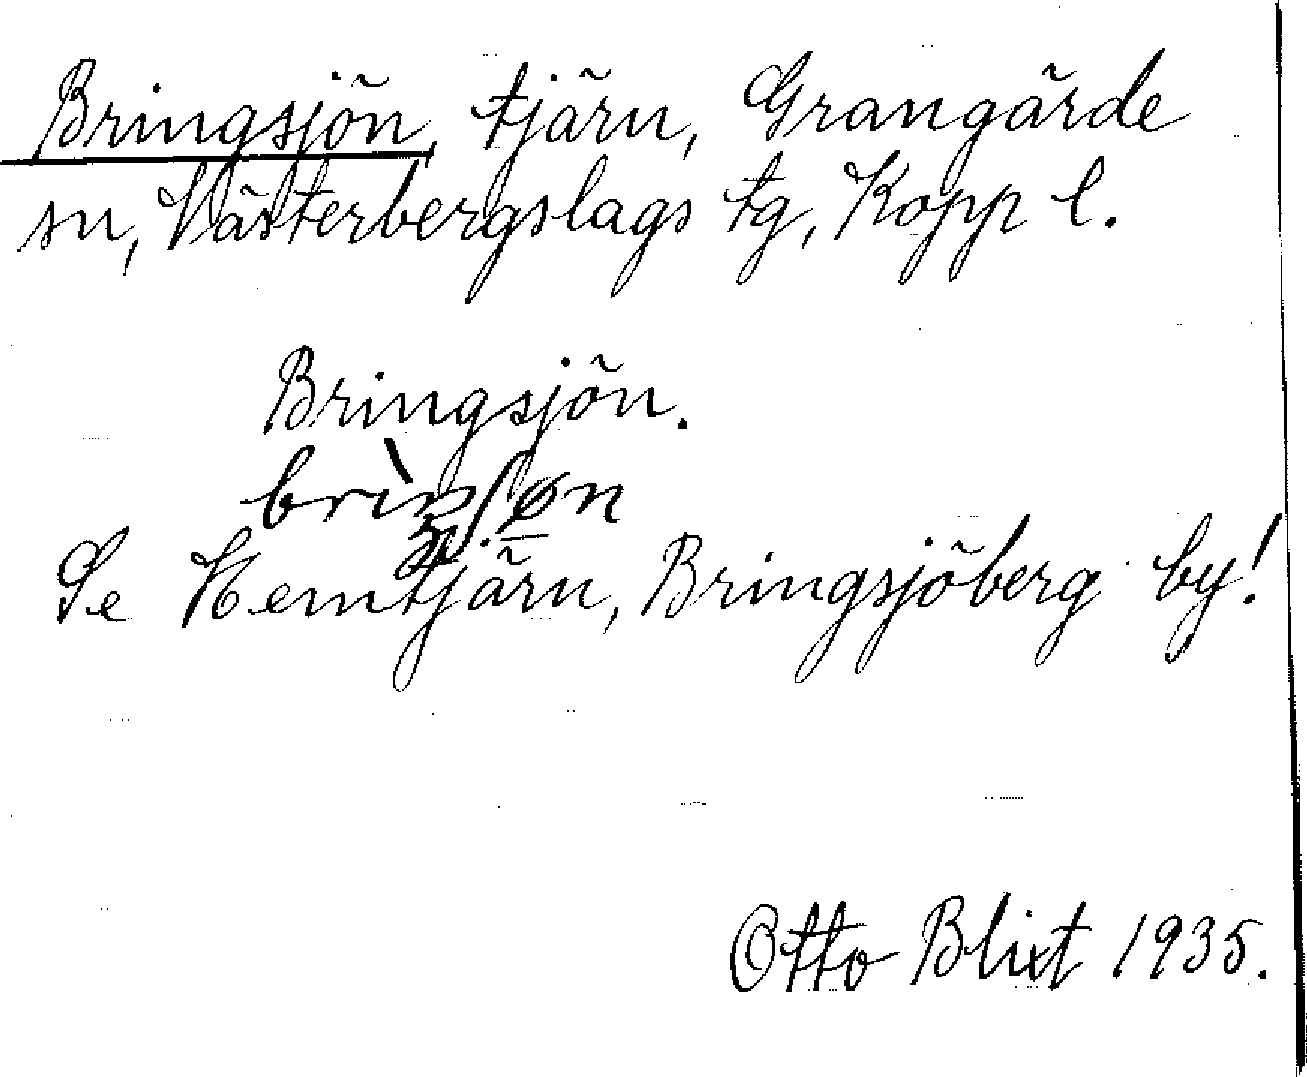 Bringsjön, tjärn, Grangärde
sn, Västerbergslags tg, Kopp l.
Bringsjön.
Se Hemtjärn, Bringsjöberg by!
Otto Blixt 1935.